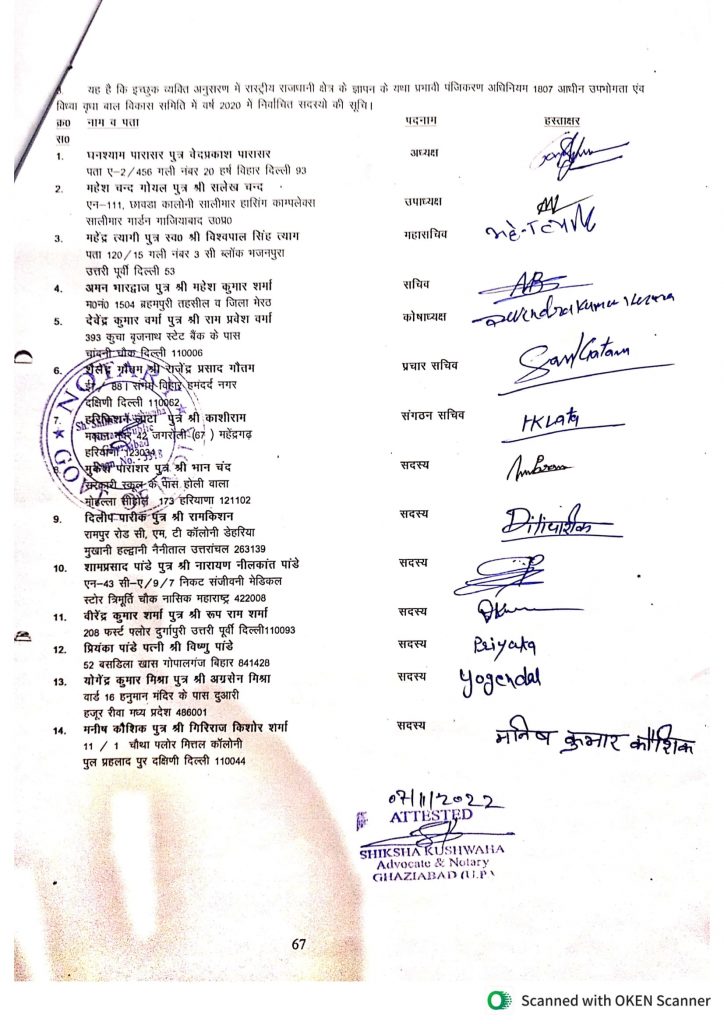 यह है कि इच्छुक व्यक्ति अनुसरण में रास्ट्रीय राजधानी क्षेत्र के ज्ञापन के यथा प्रभावी पंजिकरण अधिनियम 1807 आधीन उपभोगता एंव
विधवा वृधा बाल विकास समिति में वर्ष 2020 में निर्वाचित सदस्यो की सूचि।
क्र0 नाम व पता पदनाम हस्ताक्षर
स0
1. घनश्याम पारासर पुत्र वेदप्रकाश पारासर अध्यक्ष
पता ए-2/456 गली नंबर 20 हर्ष विहार दिल्ली 93
2. महेश चन्द गोयल पुत्र श्री सलेख चन्द उपाध्यक्ष
एन-111, छावडा कालोनी सालीमार हासिंग काम्पलेक्स
सालीमार गार्डन गाजियाबाद उ0प्र0
3. महेंद्र त्यागी पुत्र स्व0 श्री विश्वपाल सिंह त्याग महासचिव
पता 120/15 गली नंबर 3 सी ब्लॉक भजनपुरा
उत्तरी पूर्वी दिल्ली 53
4. अमन भारद्वाज पुत्र श्री महेश कुमार शर्मा सचिव
म0नं0 1504 ब्रहमपुरी तहसील व जिला मेरठ
5. देवेंद्र कुमार वर्मा पुत्र श्री राम प्रवेश वर्मा कोषाध्यक्ष
393 कुचा बृजनाथ स्टेट बैंक के पास
चांदनी चौक दिल्ली 110006
6. शैलेंद्र गौतम श्री राजेंद्र प्रसाद गौतम प्रचार सचिव
विहार हमदर्द नगर
दक्षिणी दिल्ली 110062
7. पुत्र श्री काशीराम संगठन सचिव HKLata
42 जगरोली (67) महेंद्रगढ़
हरियाणा 123034
8. मुकेश पाराशर पुत्र श्री भान चंद सदस्य
सरकारी स्कूल के पास होली वाला
मोहल्ला 173 हरियाणा 121102
9. दिलीप पारीक पुत्र श्री रामकिशन सदस्य
रामपुर रोड सी, एम, टी कॉलोनी डेहरिया
मुखानी हल्द्वानी नैनीताल उत्तरांचल 263139
10. शामप्रसाद पांडे पुत्र श्री नारायण नीलकांत पांडे सदस्य
एन-43 सी-ए/9/7 निकट संजीवनी मेडिकल
स्टोर त्रिमूर्ति चौक नासिक महाराष्ट्र 422008
11. वीरेंद्र कुमार शर्मा पुत्र श्री रूप राम शर्मा सदस्य
208 फर्स्ट फ्लोर दुर्गापुरी उत्तरी पूर्वी दिल्ली110093
12. प्रियंका पांडे पत्नी श्री विष्णु पांडे सदस्य Priyaka
52 बसडिला खास गोपालगंज बिहार 841428
13. योगेंद्र कुमार मिश्रा पुत्र श्री अग्रसेन मिश्रा सदस्य Yogendal
वार्ड 16 हनुमान मंदिर के पास दुआरी
हजूर रीवा मध्य प्रदेश 486001
14. मनीष कौशिक पुत्र श्री गिरिराज किशोर शर्मा सदस्य मनिष कुमार कौशिक
11 / 1 चौथा फ्लोर मित्तल कॉलोनी
पुल प्रहलाद पुर दक्षिणी दिल्ली 110044
07/11/2022
ATTESTED
SHIKSHA KUSHWAHA
Advocate & Notary
GHAZIABAD (U.P)
67
Scanned with OKEN Scanner